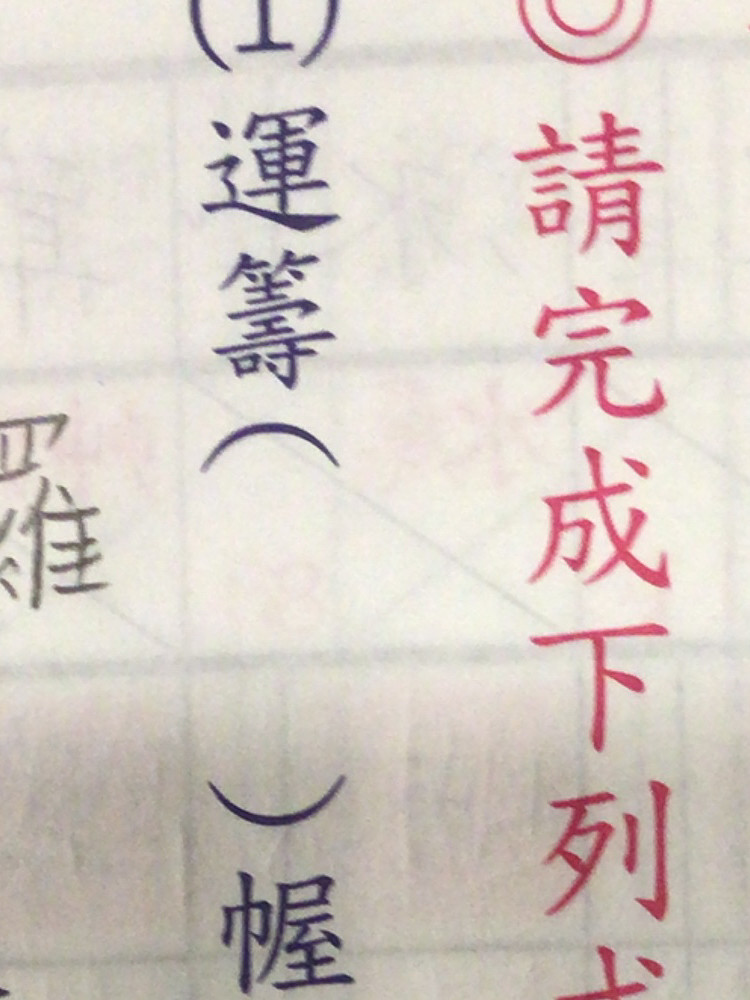 ◎請完成下列
(1)運籌（　　）幄
羅